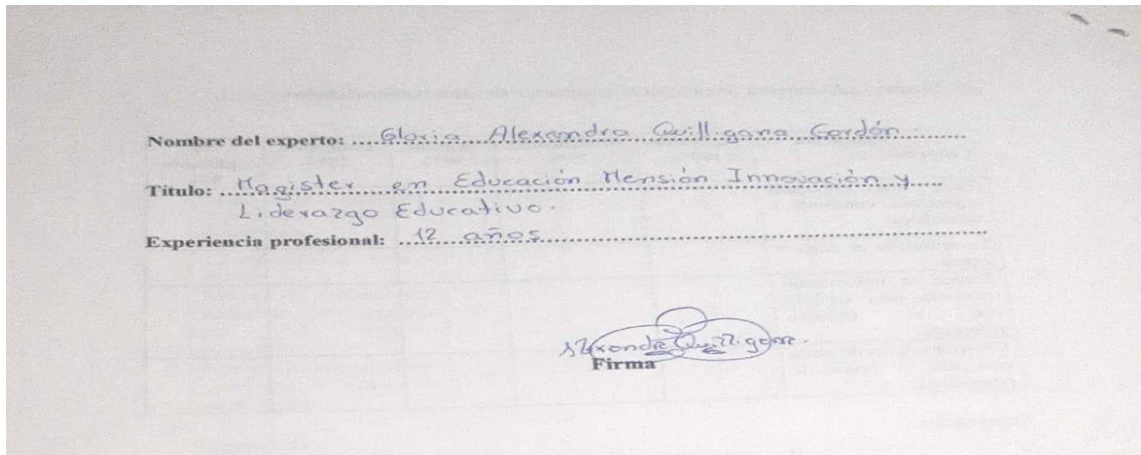 Nombre del experto: Gloria Alexandra Quilligana Gordón
Título: Magister en Educación Mensión Innovación y
Liderazgo Educativo.
Experiencia profesional: 12 años
Alexandra Quilligana.
Firma